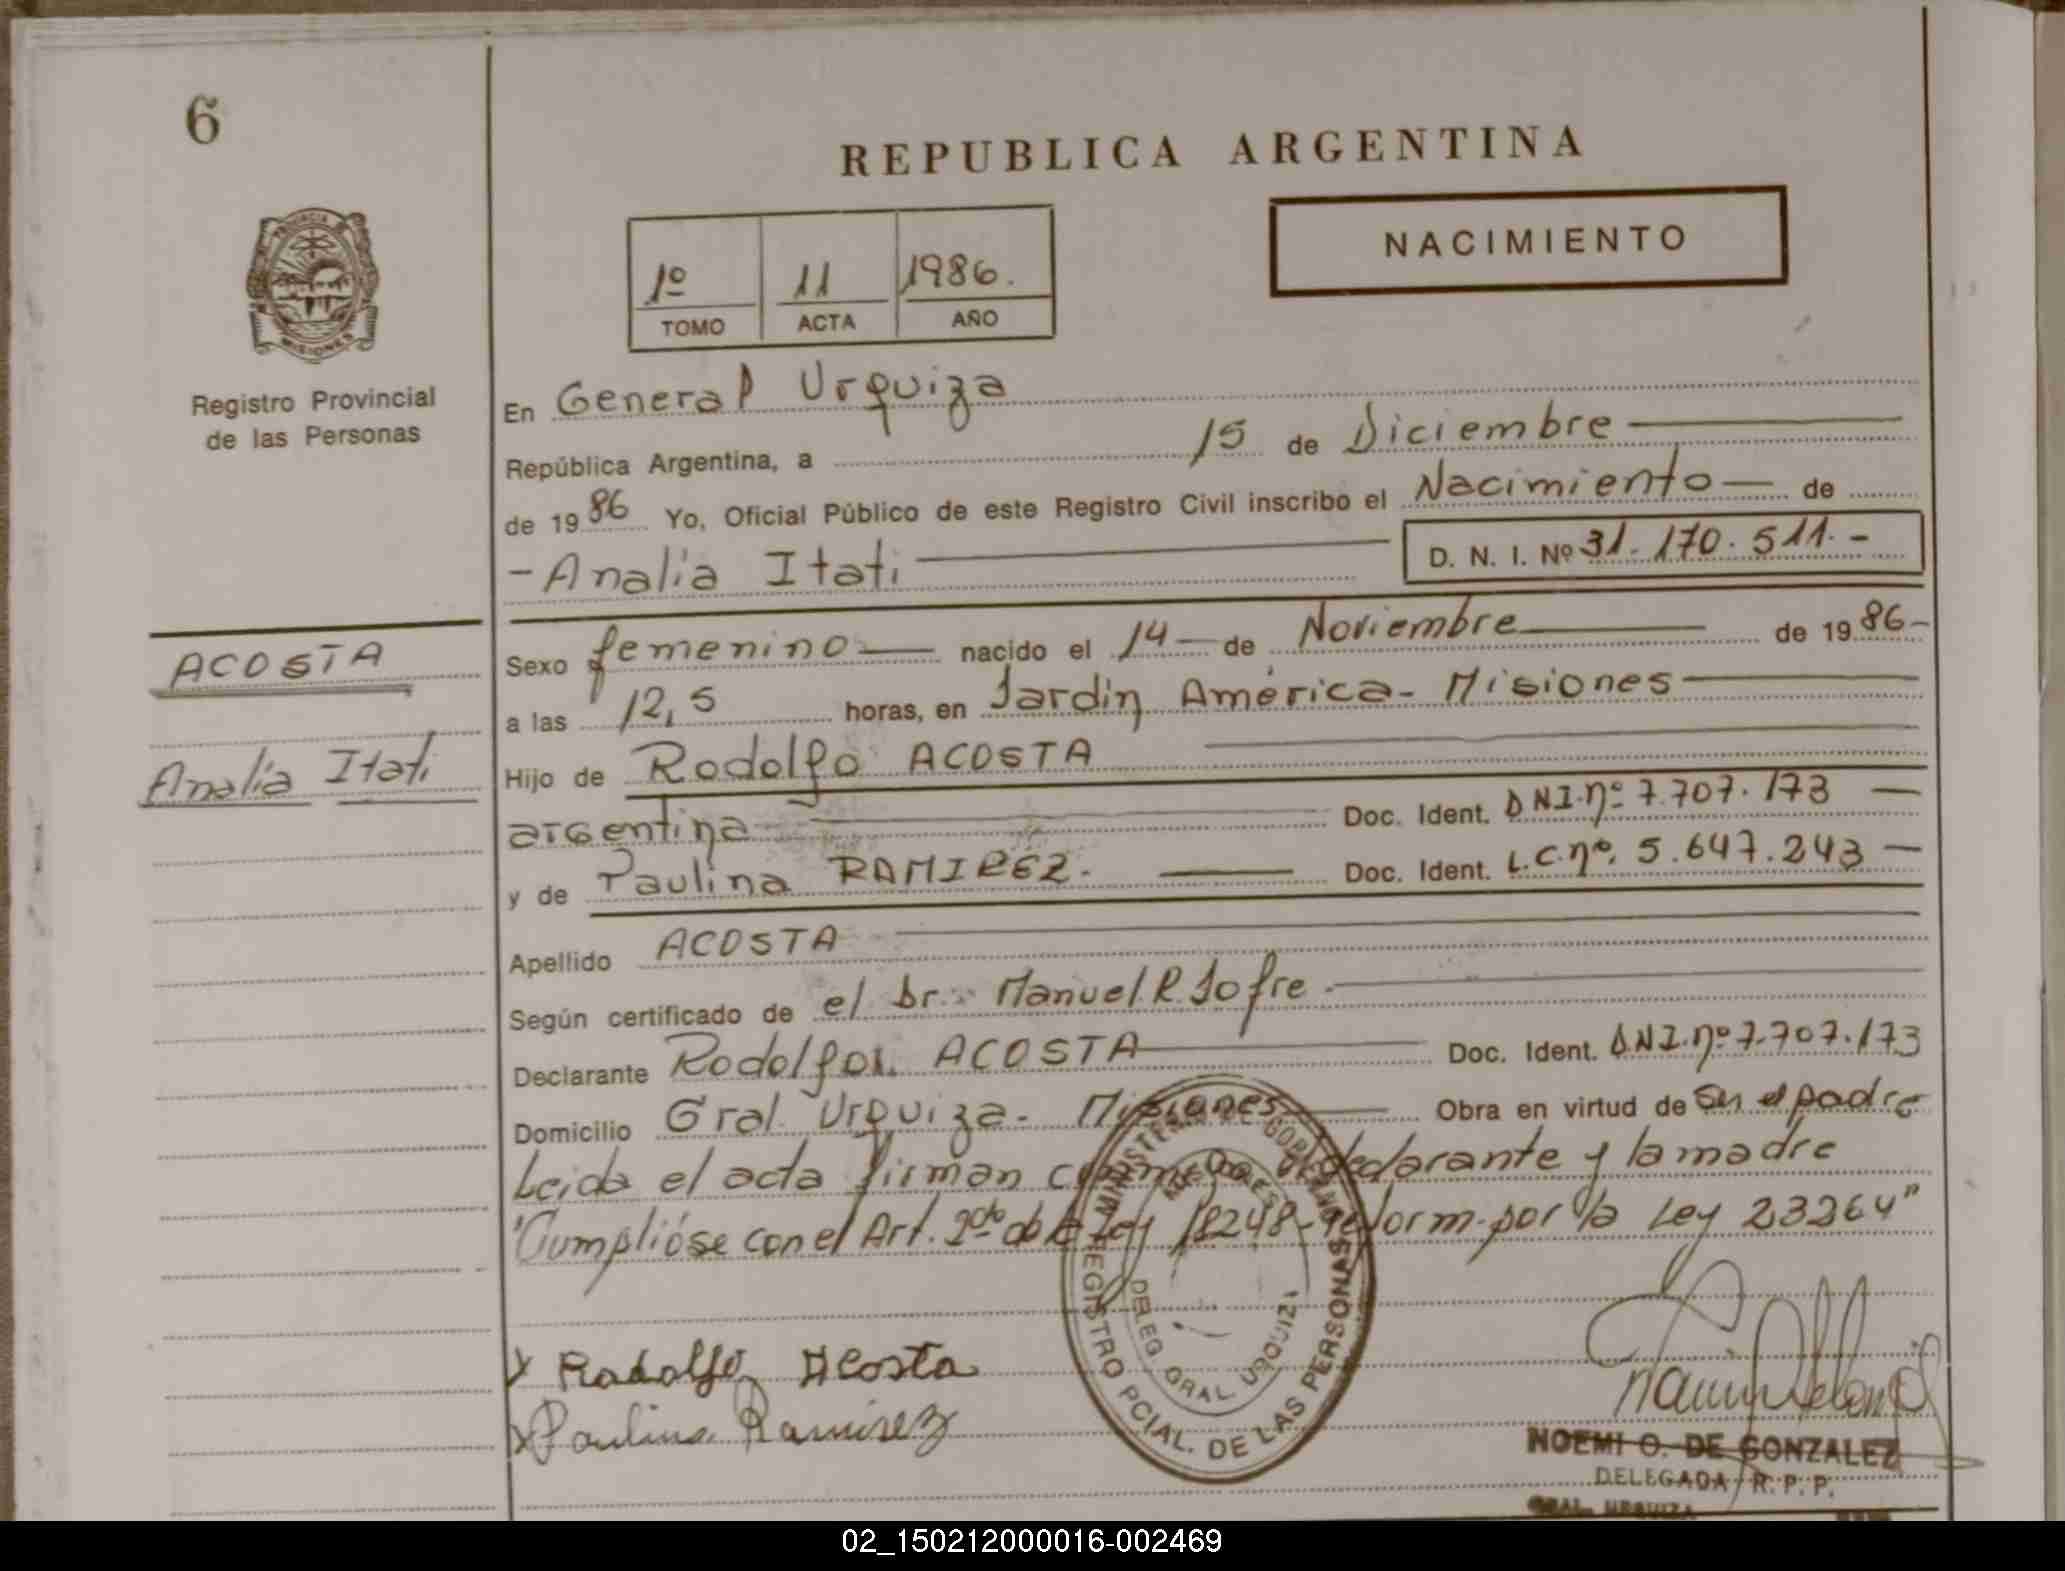 6
REPUBLICA ARGENTINA
NACIMIENTO
1º 11 1986.
TOMO ACTA AÑO
PROVINCIA
MISIONES
Registro Provincial
de las Personas
En General Urquiza
República Argentina, a 15 de Diciembre
de 1986 Yo, Oficial Público de este Registro Civil inscribo el Nacimiento de
- Analía Itatí D. N. I. Nº 31.170.511.-
ACOSTA
Analía Itatí
Sexo femenino nacido el 14 de Noviembre de 1986-
a las 12,5 horas, en Jardín América- Misiones
Hijo de Rodolfo ACOSTA
argentina Doc. Ident. DNI.nº 7.707.173
y de Paulina RAMIREZ. Doc. Ident. L.C.nº. 5.647.243
Apellido ACOSTA
Según certificado de el Dr. Manuel R. Jofre
Declarante Rodolfo ACOSTA Doc. Ident. D.N.I.nº 7.707.173
Domicilio Gral. Urquiza- Misiones Obra en virtud de ser el padre
Leida el acta firman conmigo el declarante y la madre
"Cumplióse con el Art. 2do de la Ley 18248-reform.por la Ley 23264"
MINISTERIO DE GOBIERNO
REGISTRO PCIAL. DE LAS PERSONAS
DELEG. GRAL URQUIZA
x Rodolfo Acosta
x Paulina Ramirez
NOEMI O. DE GONZALEZ
DELEGADA R. P. P.
GRAL. URQUIZA
02_150212000016-002469